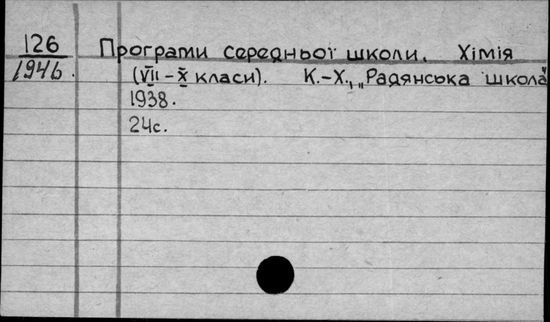 126
1946.
Програми середньої школи. Хімія
(VII-X класи). К.-Х., „Радянська школа"
1938.
24с.